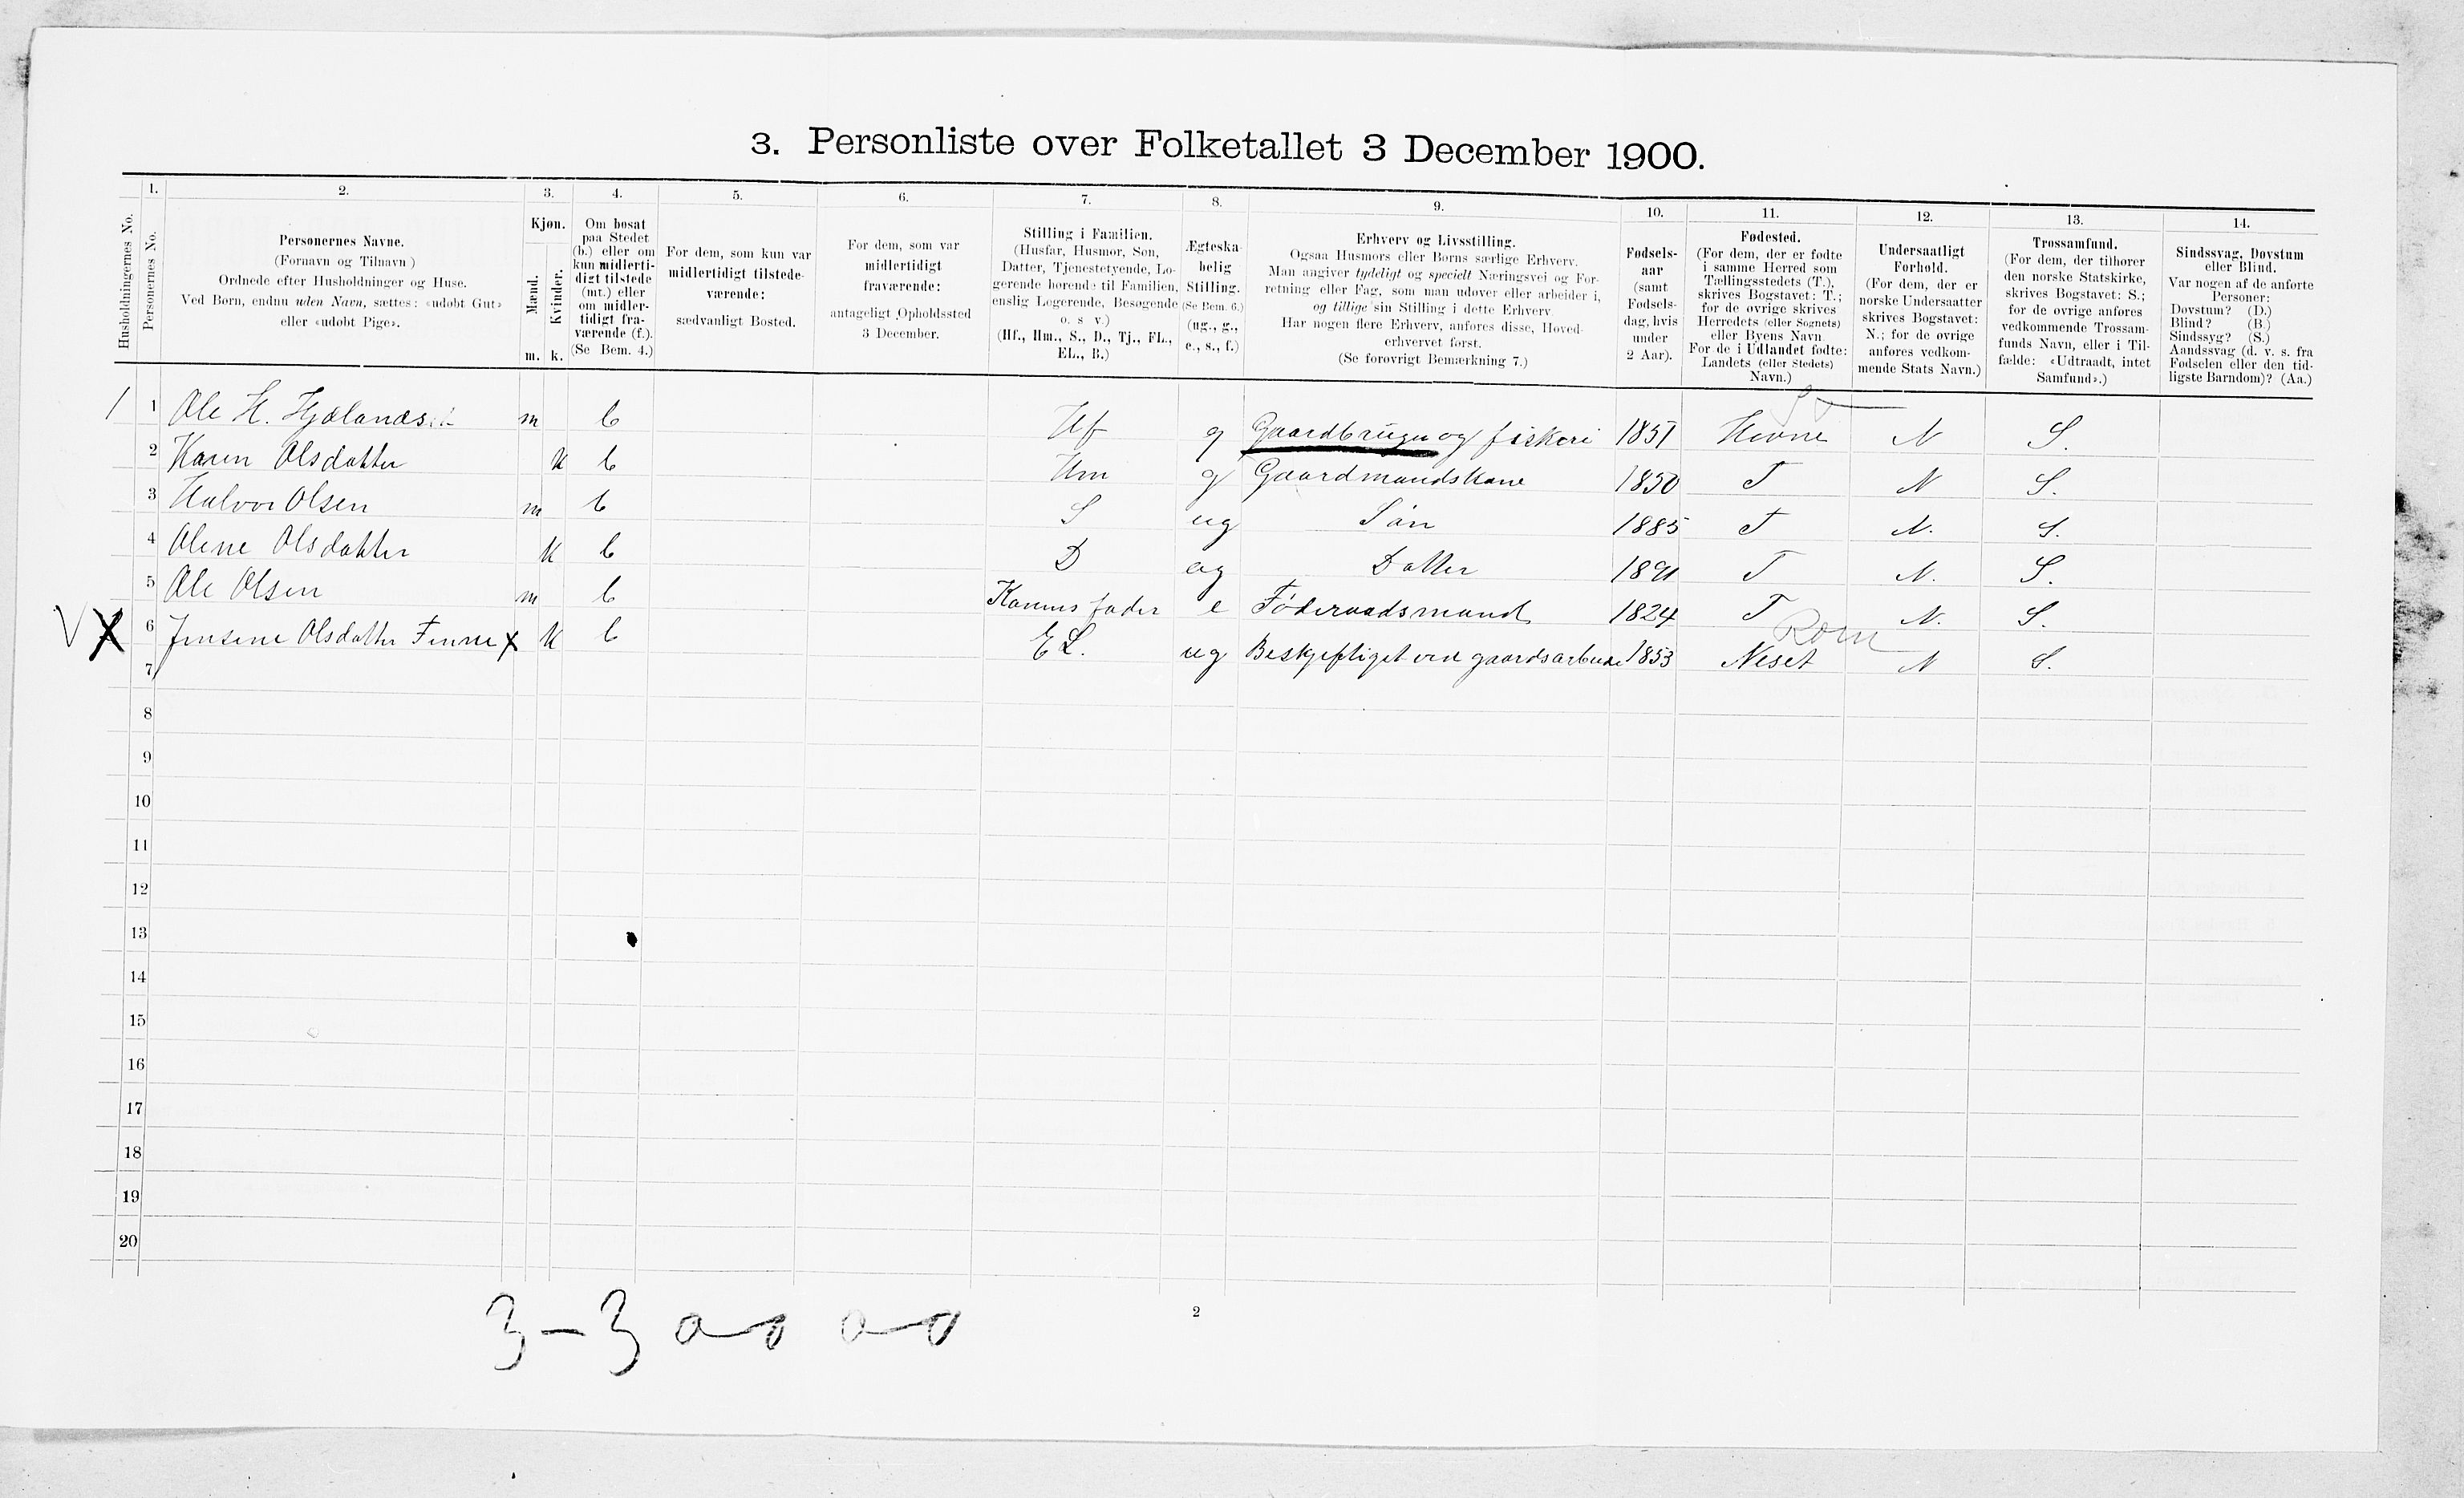 3. Personliste over Folketallet 3 December 1900.
Husholdningernes No.
1.
Personernes No.
2.
Personernes Navne.
(Fornavn og Tilnavn)
Ordnede efter Husholdninger og Huse.
Ved Børn, endnu uden Navn, sættes: «udøbt Gut»
eller «udøbt Pige».
3.
Kjøn.
Mænd.
Kvinder.
m. k.
4.
Om bosat
paa Stedet
(b.) eller om
kun midlerti-
digt tilstede
(mt.) eller
om midler-
tidigt fra-
værende (f.).
(Se Bem. 4.)
5.
For dem, som kun var
midlertidigt tilstede-
værende:
sædvanligt Bosted.
6.
For dem, som var
midlertidigt
fraværende:
antageligt Opholdssted
3 December.
7.
Stilling i Familien.
(Husfar, Husmor, Søn,
Datter, Tjenestetyende, Lo-
gerende hørende til Familien,
enslig Logerende, Besøgende
o. s v.)
(Hf., Hm., S., D., Tj., FL.,
EL., B.)
8.
Ægteska-
belig
Stilling.
(Se Bem. 6.)
(ug., g.,
e., s., f.)
9.
Erhverv og Livsstilling.
Ogsaa Husmors eller Børns særlige Erhverv.
Man angiver tydeligt og specielt Næringsvei og For-
retning eller Fag, som man udøver eller arbeider i,
og tillige sin Stilling i dette Erhverv.
Har nogen flere Erhverv, anføres disse, Hoved-
erhvervet først.
(Se forøvrigt Bemærkning 7.)
10.
Fødsels-
aar
(samt
Fødsels-
dag, hvis
under
2 Aar).
11.
Fødested.
(For dem, der er fødte
i samme Herred som
Tællingsstedets (T.),
skrives Bogstavet: T.;
for de øvrige skrives
Herredets (eller Sognets)
eller Byens Navn.
For de i Udlandet fødte:
Landets (eller Stedets)
Navn.)
12.
Undersaatligt
Forhold.
(For dem, der er
norske Undersaatter
skrives Bogstavet:
N.; for de øvrige
anføres vedkom-
mende Stats Navn.)
13.
Trossamfund.
(For dem, der tilhører
den norske Statskirke,
skrives Bogstavet: S.;
for de øvrige anføres
vedkommende Trossam-
funds Navn, eller i Til-
fælde: «Udtraadt, intet
Samfund».)
14.
Sindssvag, Døvstum
eller Blind.
Var nogen af de anførte
Personer:
Døvstum? (D.)
Blind? (B.)
Sindssyg? (S.)
Aandssvag (d. v. s. fra
Fødselen eller den tid-
ligste Barndom)? (Aa.)
1 1 Ole H. Hjelandset m b Hf g Gaardbruger og fiskeri 1851 Hevne N S.
2 Karen Olsdatter k b Hm g Gaardmandskone 1850 T N S.
3 Halvor Olsen m b S ug Søn 1885 T N. S.
4 Olene Olsdatter k b D ug Datter 1891 T N. S.
5 Ole Olsen m b Konens fader e Føderaadsmand 1824 T N. S.
Rom
V X 6 Jensine Olsdatter Finne x k b EL. ug Beskjeftiget ved gaardsarbeide 1853 Neset N S.
7
8
9
10
11
12
13
14
15
16
17
18
19
20
3-3 0-0 0-0
2